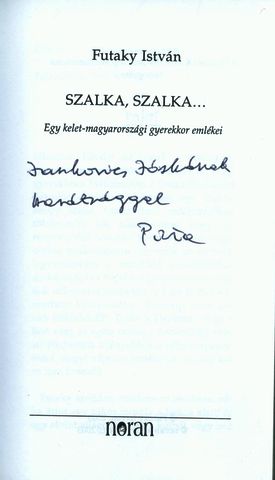 Futaky István
SZALKA, SZALKA...
Egy kelet-magyarországi gyerekkor emlékei
Jankovics Jóskának
barátsággal
noran